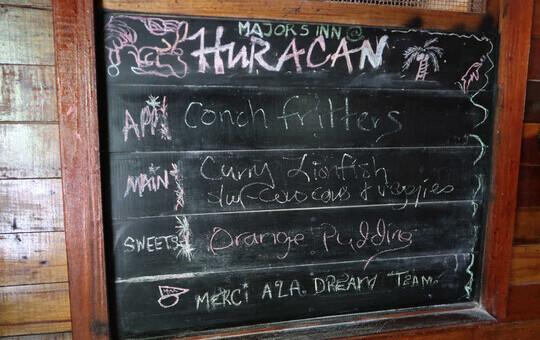 MAJOKS INN @
HURACAN
APP
Conch fritters
MAIN
Curry Lionfish
couscous + veggies
SWEETS
Orange Pudding
MERCI A LA DREAM TEAM